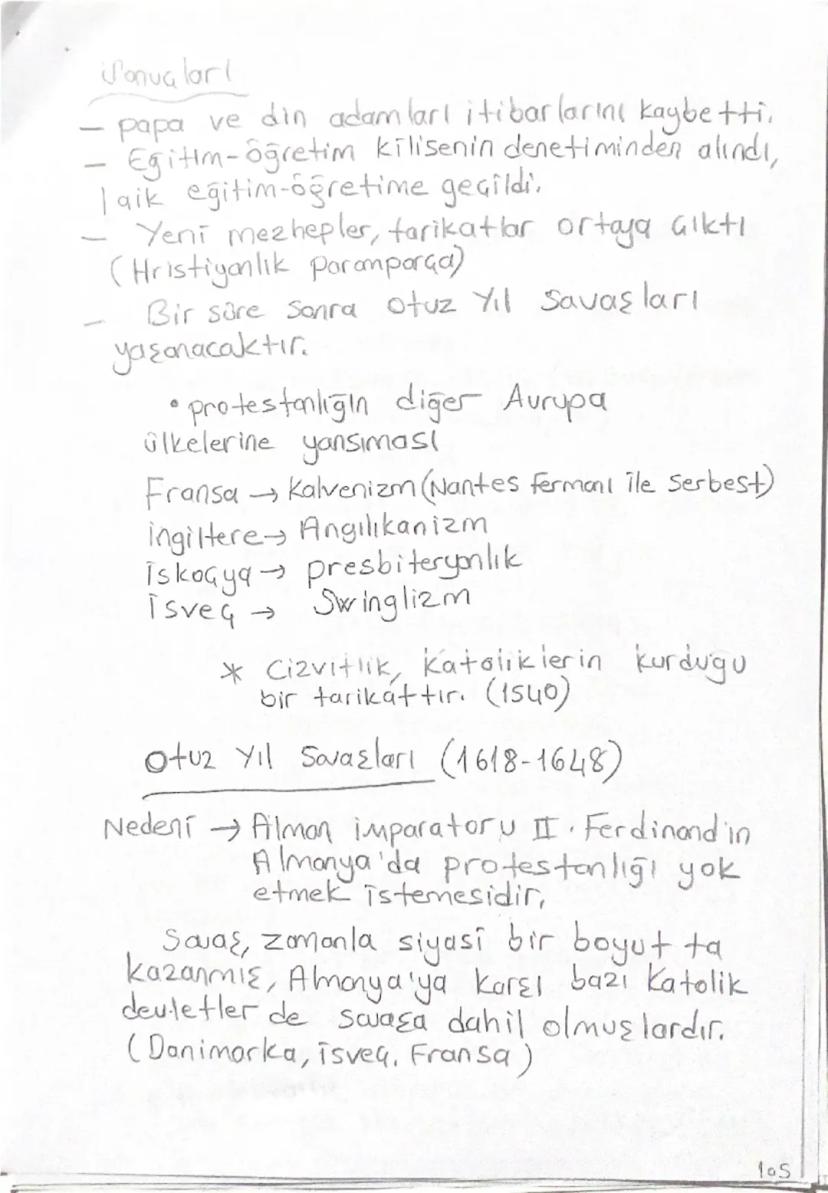 Sonuçları
- papa ve din adamları itibarlarını kaybetti.
- Eğitim-öğretim kilisenin denetiminden alındı,
laik eğitim-öğretime geçildi.
- Yeni mezhepler, tarikatlar ortaya çıktı
(Hristiyanlık paramparça)
- Bir süre sonra Otuz Yıl Savaşları
yaşanacaktır.
• protestanlığın diğer Avrupa
ülkelerine yansıması
Fransa → Kalvenizm (Nantes fermanı ile serbest)
İngiltere → Angılıkanizm
İskoçya → presbiteryanlık
İsveç → Swinglizm
* Cizvitlik, Katoliklerin kurduğu
bir tarikattır. (1540)
Otuz Yıl Savaşları (1618-1648)
Nedeni → Alman imparatoru II. Ferdinand'ın
Almanya'da protestanlığı yok
etmek istemesidir,
Savaş, zamanla siyasi bir boyut ta
kazanmış, Almanya'ya karşı bazı Katolik
devletler de savaşa dahil olmuşlardır.
(Danimarka, İsveç, Fransa)
105